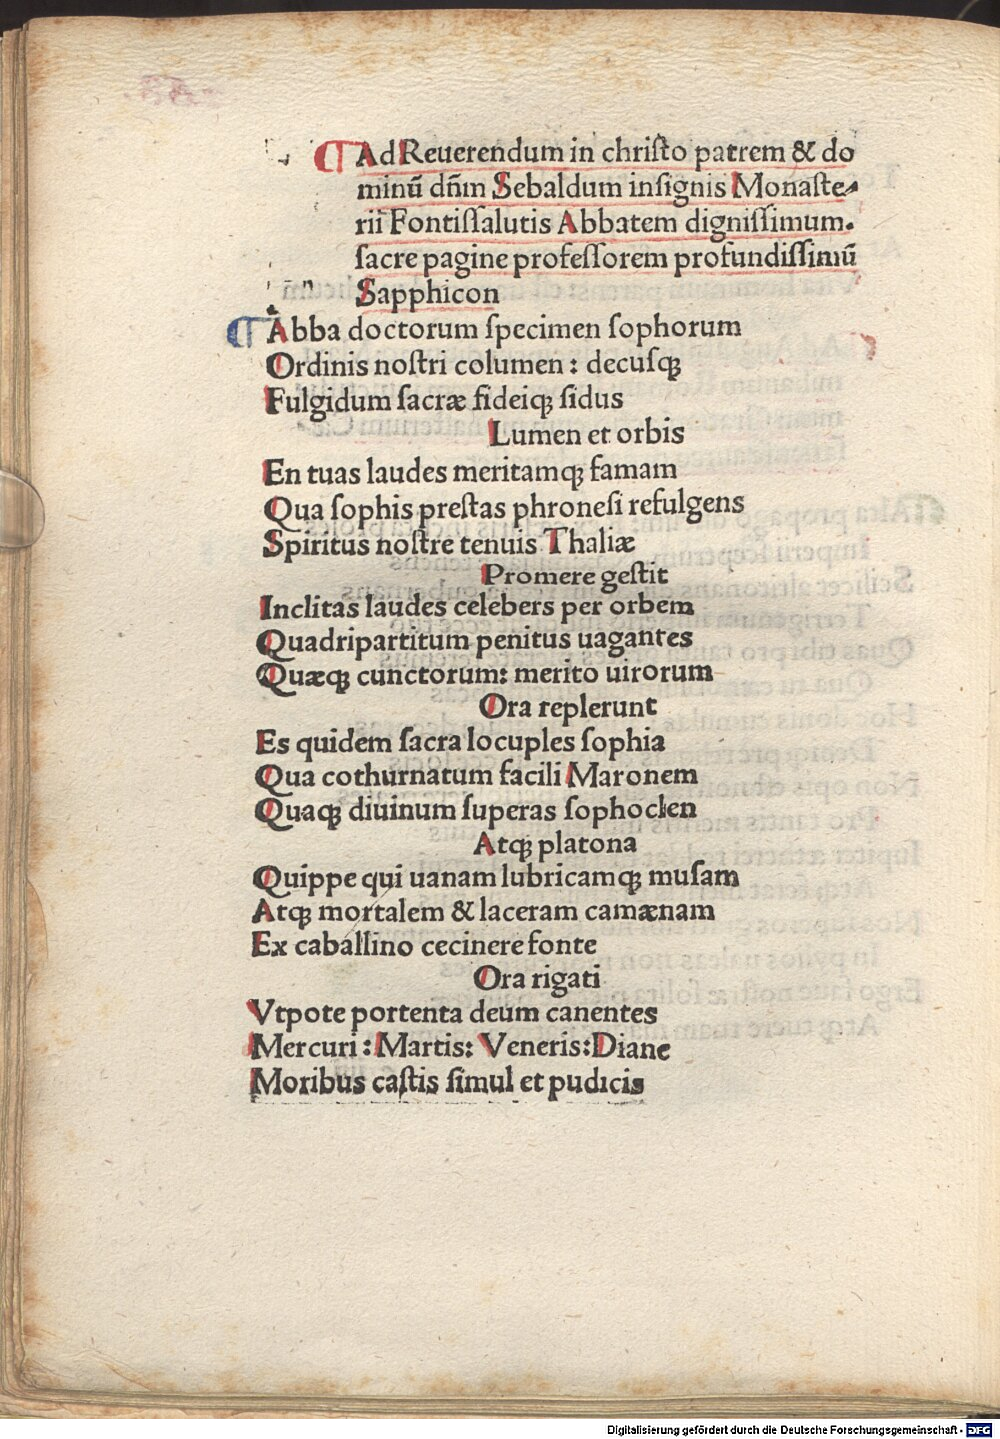 ¶Ad Reuerendum in chriſto patrem & do
minū dn̄m Sebaldum inſignis Monaſte⸗
rii Fontiſſalutis Abbatem digniſſimum.
ſacre pagine profeſſorem profundiſſimū
Sapphicon
¶Abba doctorum ſpecimen ſophorum
Ordinis noſtri columen : decuſqꝫ
Fulgidum ſacræ fideiqꝫ ſidus
Lumen et orbis
En tuas laudes meritamqꝫ famam
Qua ſophis preſtas phroneſi refulgens
Spiritus noſtre tenuis Thaliæ
Promere geſtit
Inclitas laudes celebers per orbem
Quadripartitum penitus uagantes
Quæqꝫ cunctorum: merito uirorum
Ora replerunt
Es quidem ſacra locuples ſophia
Qua cothurnatum facili Maronem
Quaqꝫ diuinum ſuperas ſophoclen
Atqꝫ platona
Quippe qui uanam lubricamqꝫ muſam
Atqꝫ mortalem & laceram camænam
Ex caballino cecinere fonte
Ora rigati
Vtpote portenta deum canentes
Mercuri : Martis: Veneris: Diane
Moribus caſtis ſimul et pudicis
Digitalisierung gefördert durch die Deutsche Forschungsgemeinschaft - DFG